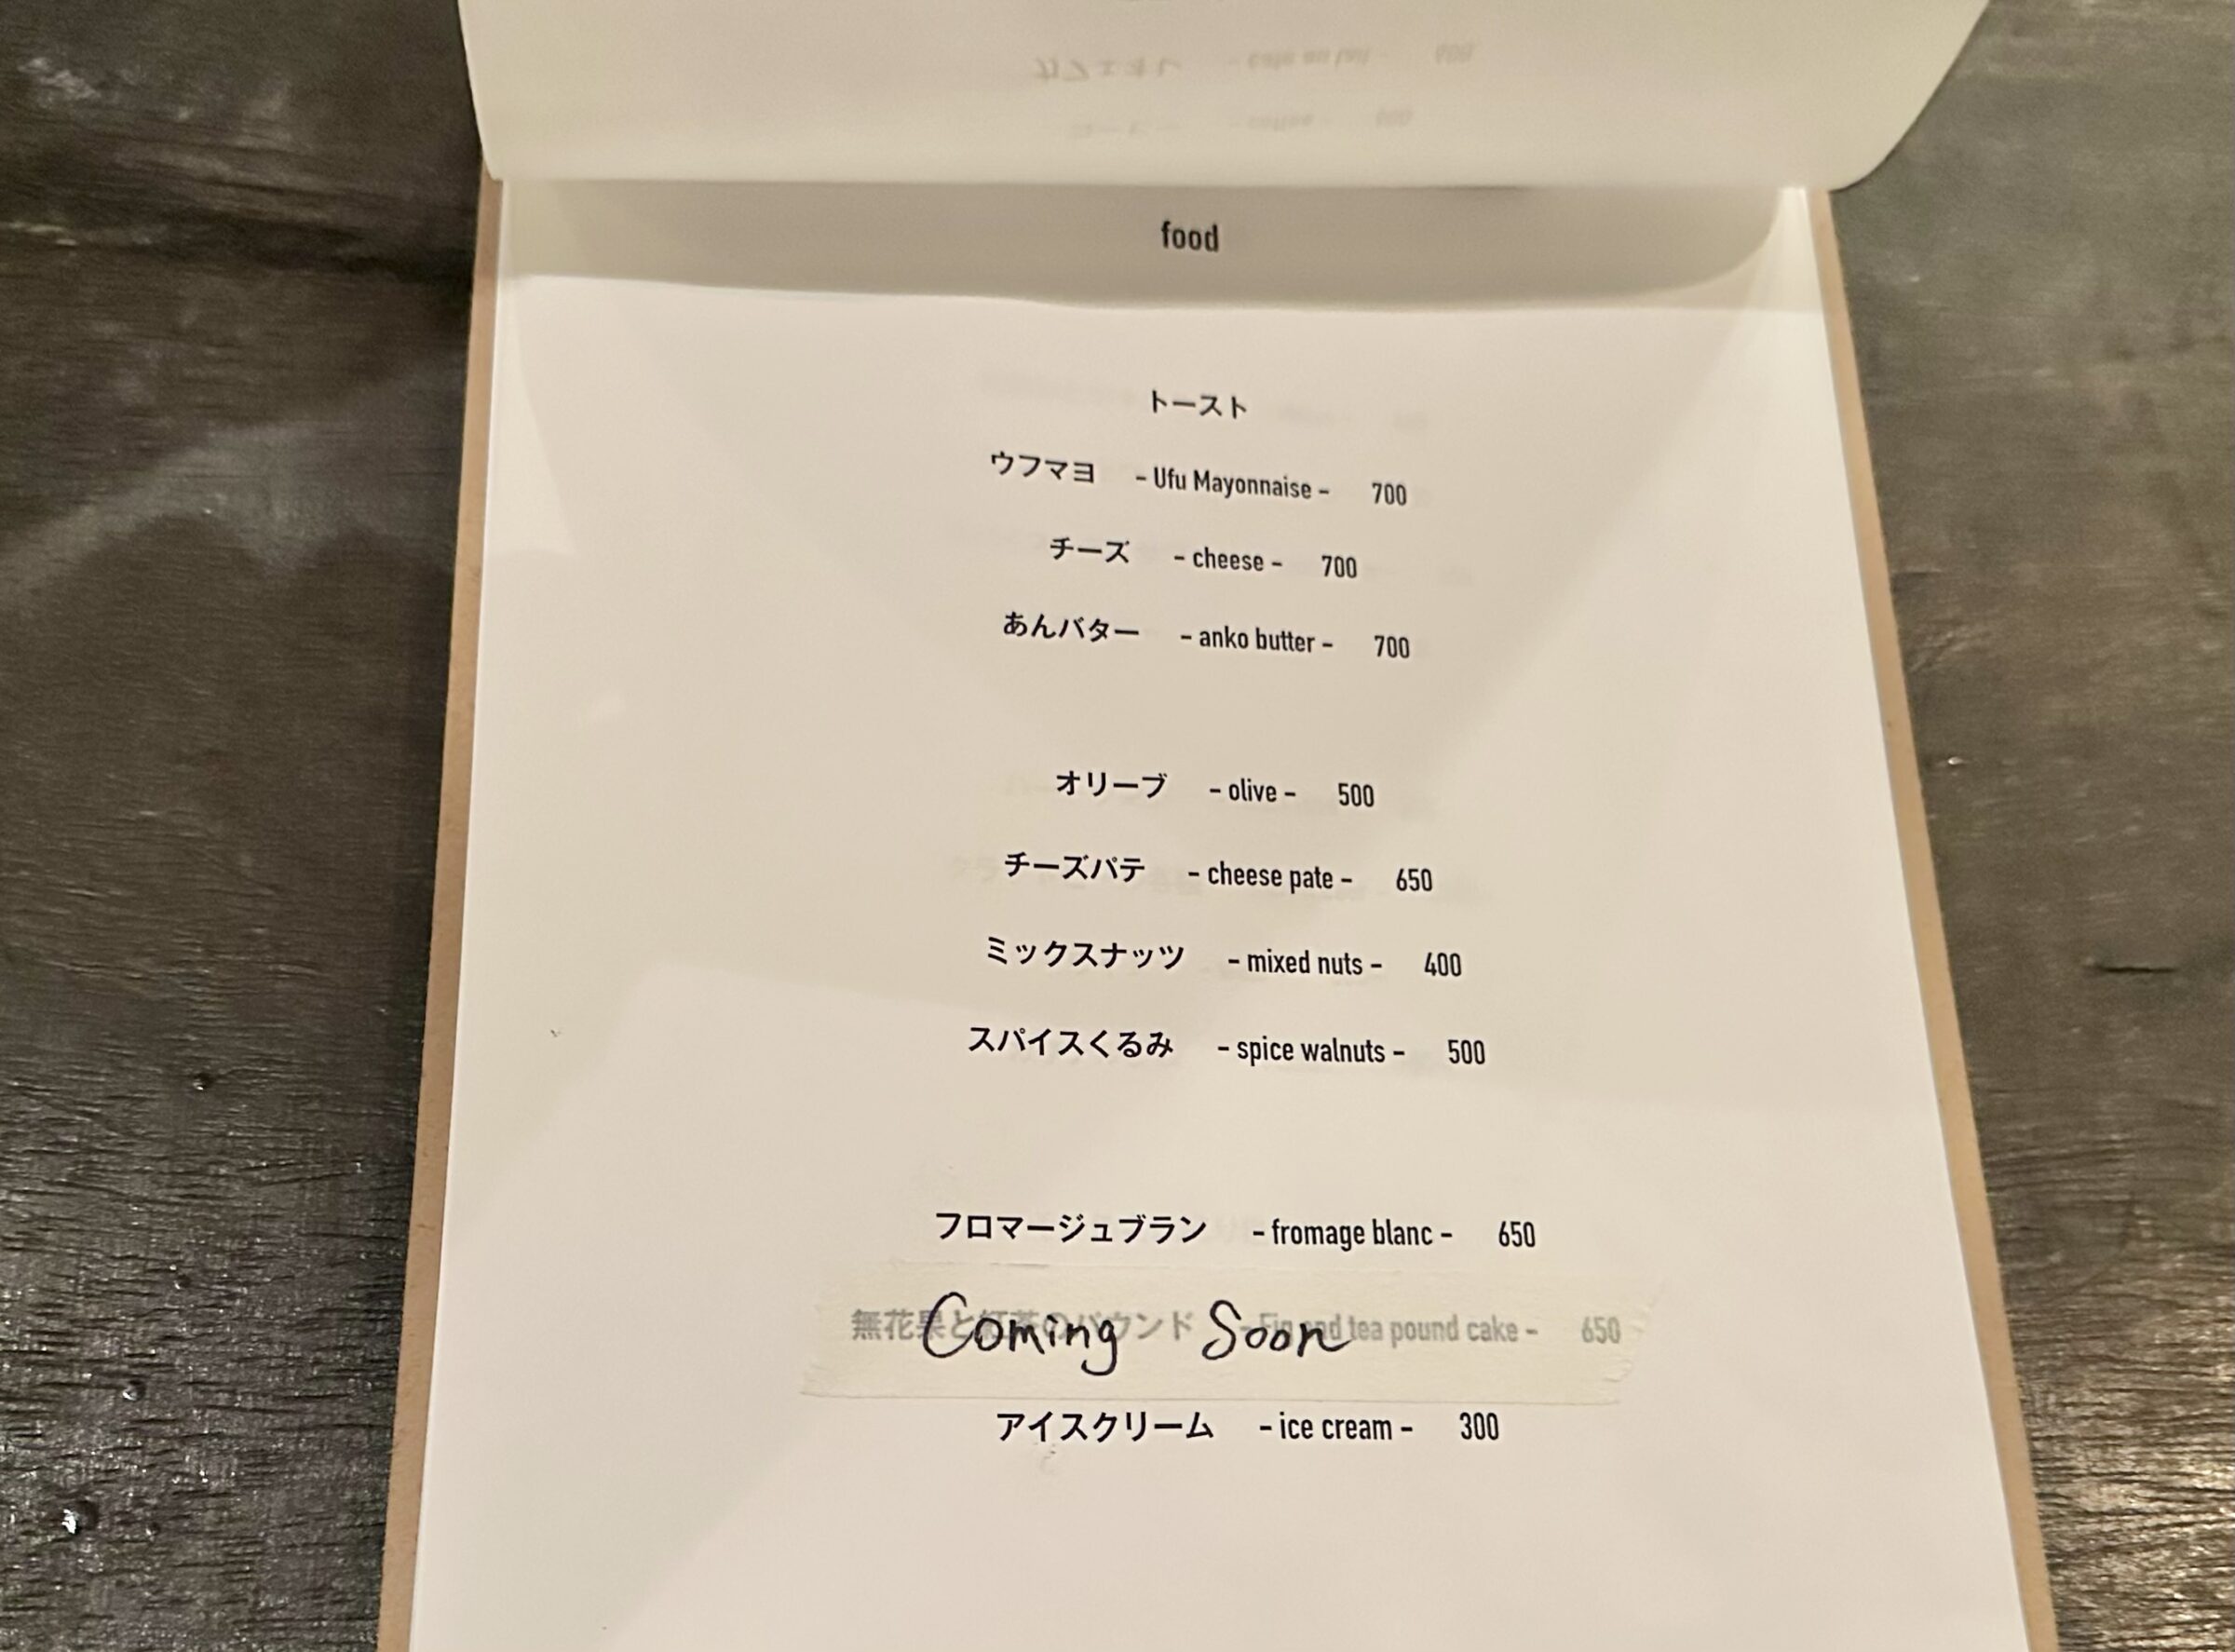 food
トースト
ウフマヨ - Ufu Mayonnaise - 700
チーズ - cheese - 700
あんバター - anko butter - 700
オリーブ - olive - 500
チーズパテ - cheese pate - 650
ミックスナッツ - mixed nuts - 400
スパイスくるみ - spice walnuts - 500
フロマージュブラン - fromage blanc - 650
Coming Soon
無花果と紅茶のパウンド - Fig and tea pound cake - 650
アイスクリーム - ice cream - 300